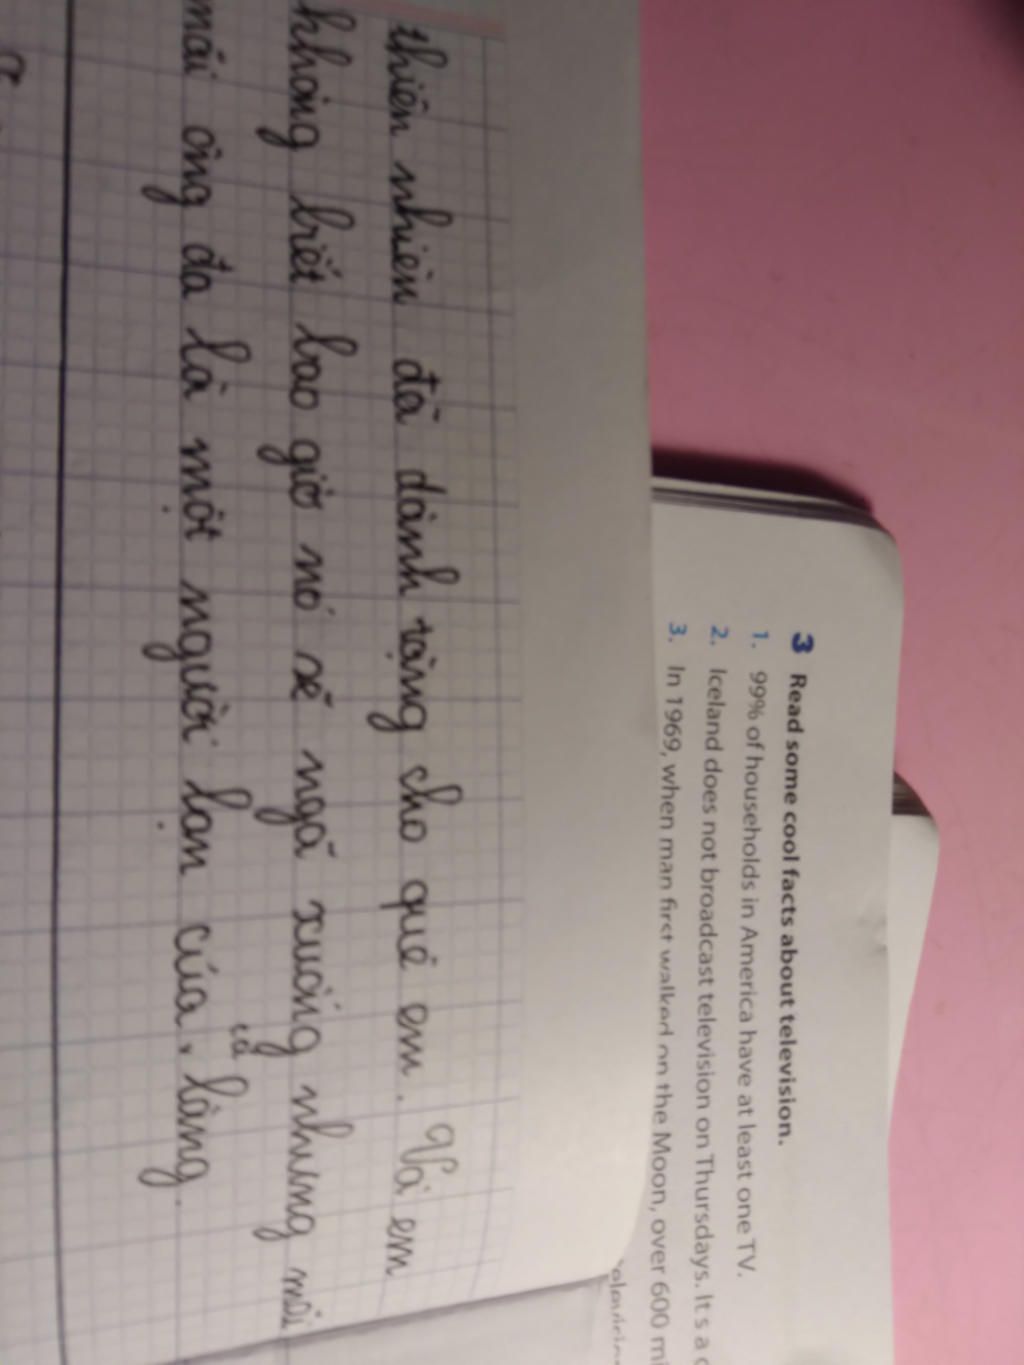 3 Read some cool facts about television.
1. 99% of households in America have at least one TV.
2. Iceland does not broadcast television on Thursdays. It's a
3. In 1969, when man first walked on the Moon, over 600
thiên nhiên đã dành tặng cho quê em. Và em
không biết bao giờ nó sẽ ngã xuống nhưng mãi
mãi ông đa là một người bạn của cả làng.